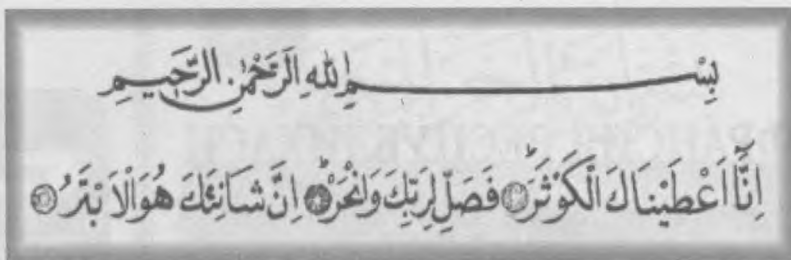 بِسْمِ اللهِ الرَّحْمٰنِ الرَّحِيمِ
اِنَّٓا اَعْطَيْنَاكَ الْكَوْثَرَۜ ۝ فَصَلِّ لِرَبِّكَ وَانْحَرْۜ ۝ اِنَّ شَانِئَكَ هُوَ الْاَبْتَرُ ۝